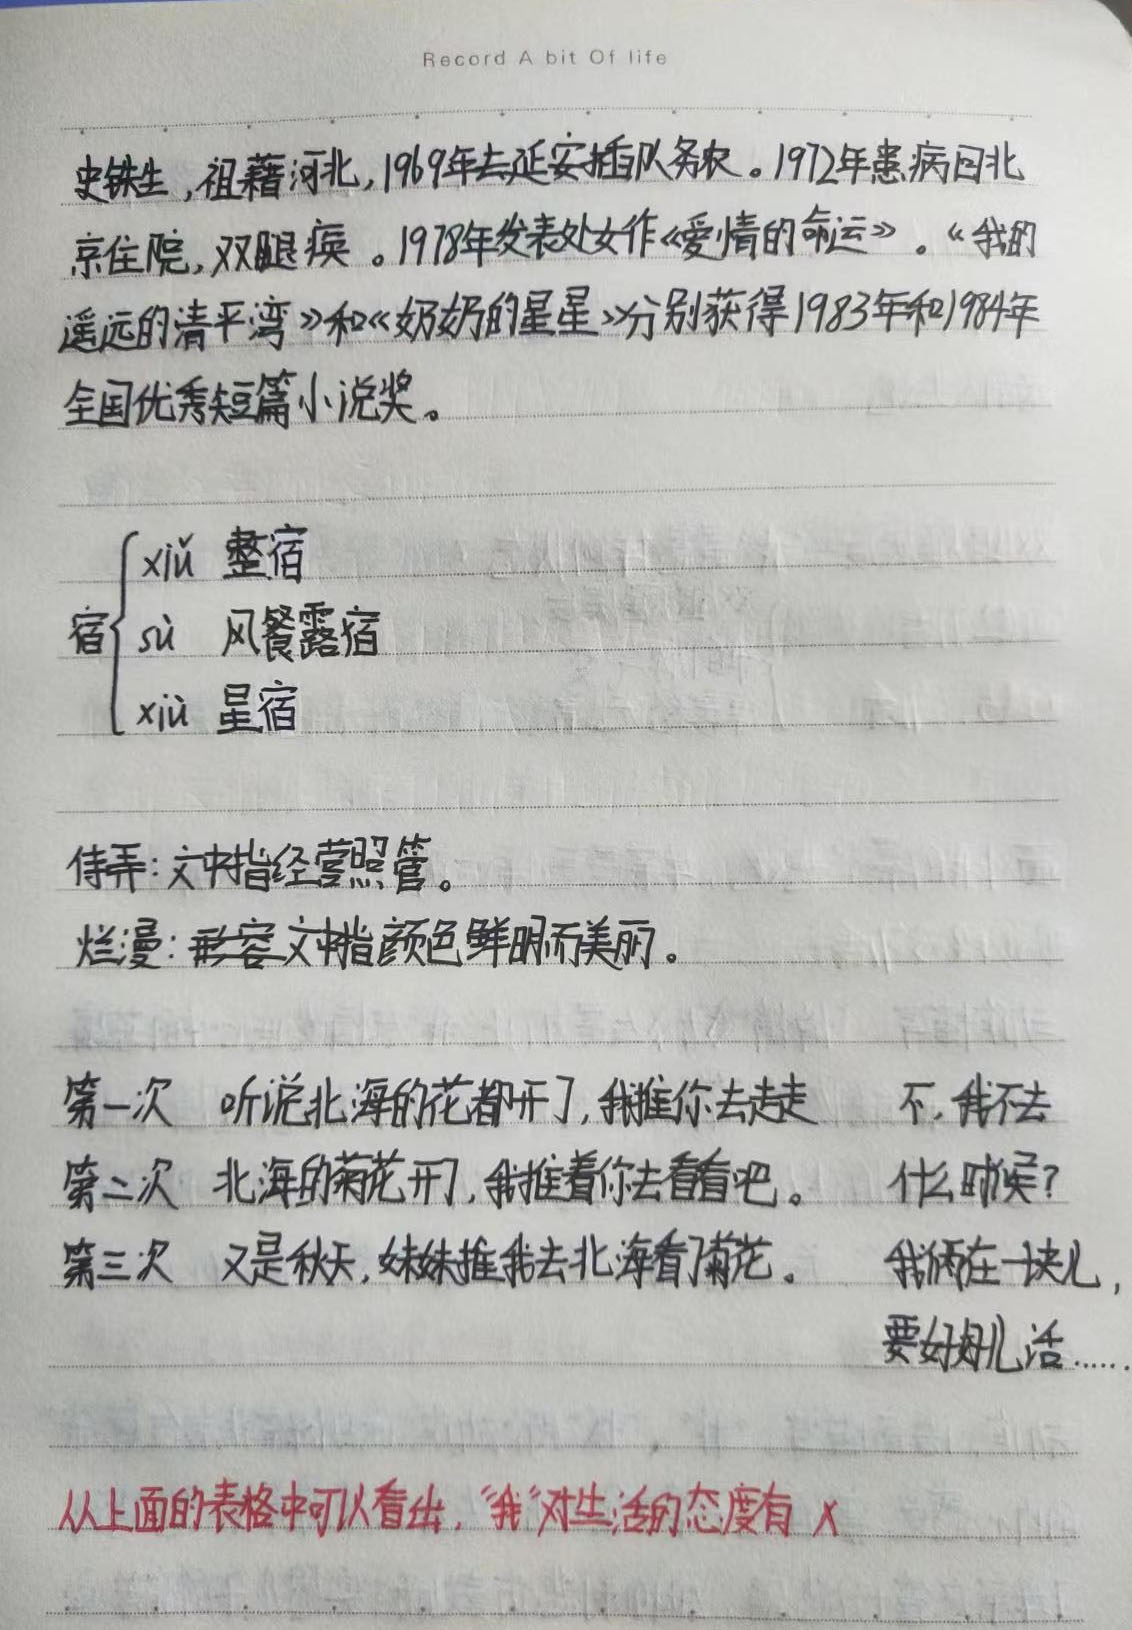 Record A bit Of life
史铁生,祖藉河北,1969年去延安插队务农。1972年患病回北
京住院,双腿痪。1978年发表处女作《爱情的命运》。《我的
遥远的清平湾》和《奶奶的星星》分别获得1983年和1984年
全国优秀短篇小说奖。
xiǔ 整宿
宿 sù 风餐露宿
xiù 星宿
侍弄:文中指经营照管。
烂漫:形容文中指颜色鲜明而美丽。
第一次 听说北海的花都开了,我推你去走走 不,我不去
第二次 北海的菊花开了,我推着你去看看吧。 什么时候?
第三次 又是秋天,妹妹推我去北海看了菊花。 我俩在一块儿,
要好好儿活……
从上面的表格中可以看出,“我”对生活的态度有 x